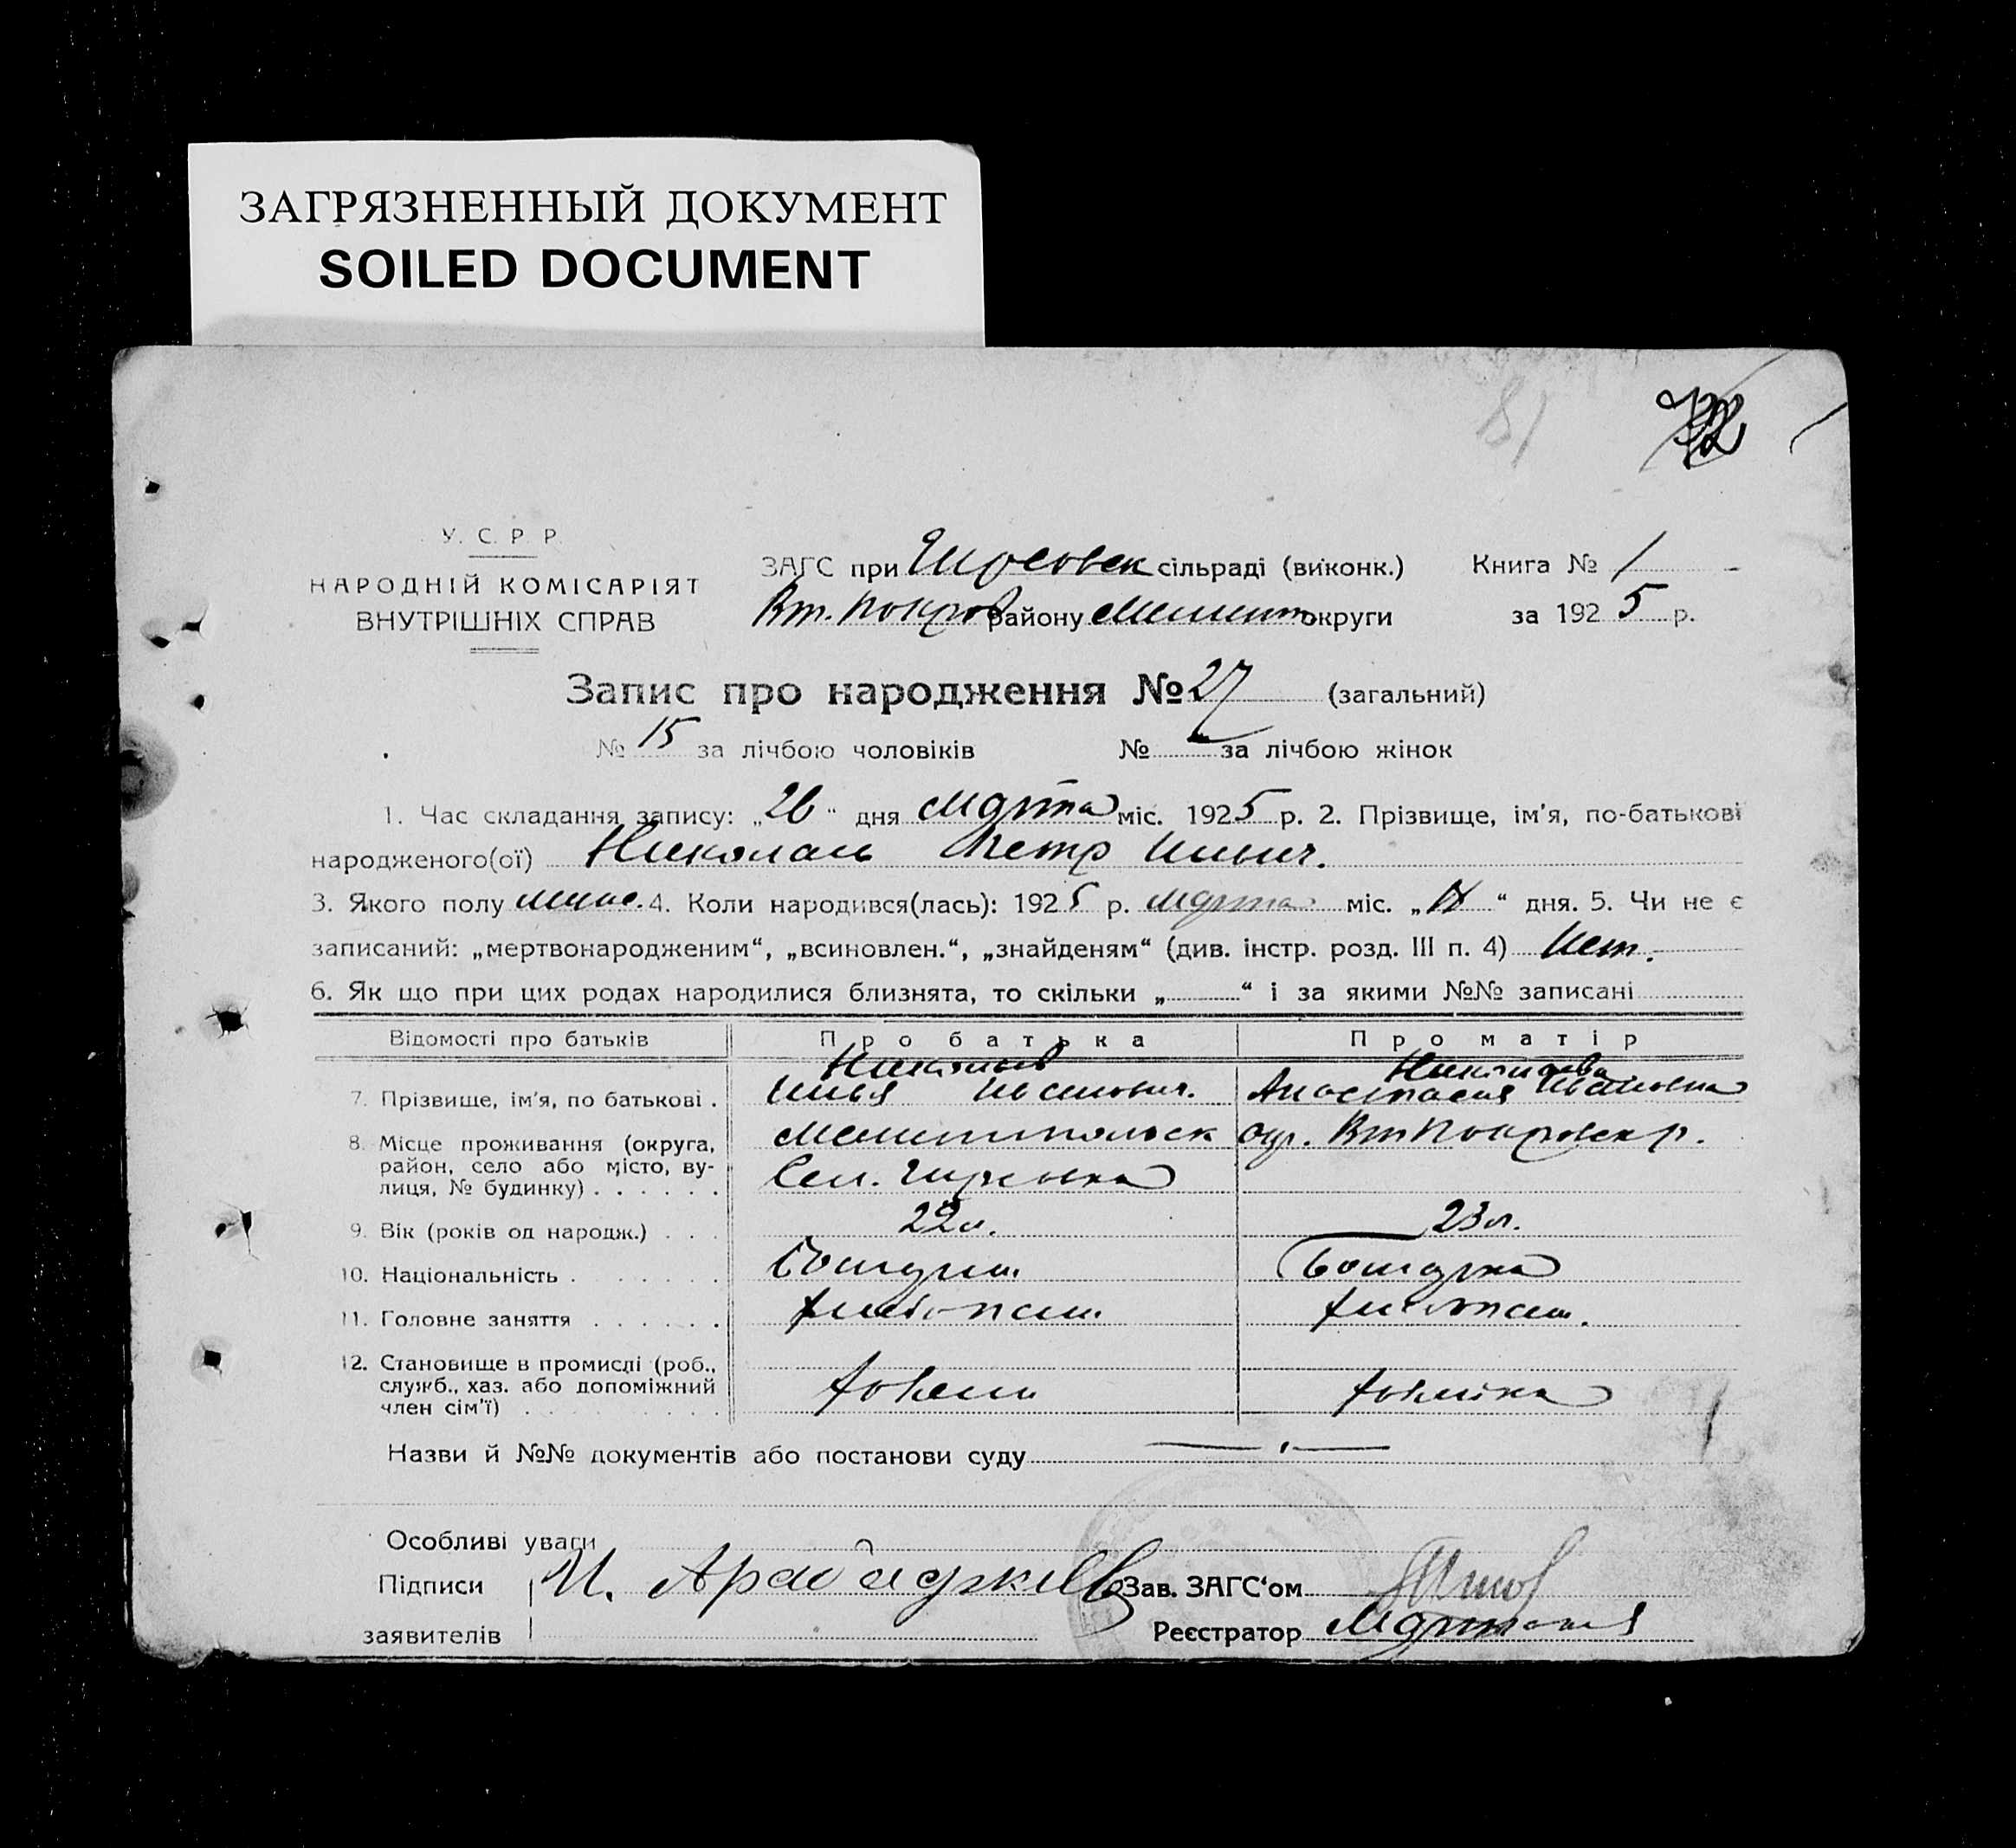 ЗАГРЯЗНЕННЫЙ ДОКУМЕНТ
SOILED DOCUMENT
81
У. С. Р. Р.
НАРОДНІЙ КОМІСАРІЯТ
ВНУТРІШНІХ СПРАВ
ЗАГС при сільраді (виконк.) Книга № 1
Вт. Покров району Мелит округи за 1925 р.
Запис про народження № 27 (загальний)
№ 15 за лічбою чоловіків № за лічбою жінок
1. Час складання запису: „26“ дня Марта міс. 1925 р. 2. Прізвище, ім'я, по-батькові
народженого(ої) Николаев Петр Ильич.
3. Якого полу 4. Коли народився(лась): 1925 р. Марта міс. „“ дня. 5. Чи не є
записаний: „мертвонародженим“, „всиновлен.“, „знайденям“ (див. інстр. розд. III п. 4) Нет.
6. Як що при цих родах народилися близнята, то скільки „ “ і за якими №№ записані
Відомості про батьків Про батька Про матір
Николаев Николаева
7. Прізвище, ім'я, по батькові . Илья Иванович. Анастасия Ивановна
8. Місце проживання (округа, Мелитопольск окр. Вт Покровск р.
район, село або місто, ву-
лиця, № будинку) . . . . . . Сел.
9. Вік (років од народж.) . . . 22 л. 23 л.
10. Національність . . . . . . Болгарин Болгарка
11. Головне заняття . . . . . . хлебопаш. хлебопаш.
12. Становище в промислі (роб.,
служб., хаз. або допоміжний
член сім'ї) . . . . . . . . .
Назви й №№ документів або постанови суду
Особливі уваги
Підписи И. Арабаджиев Зав. ЗАГС'ом
заявителів Реєстратор